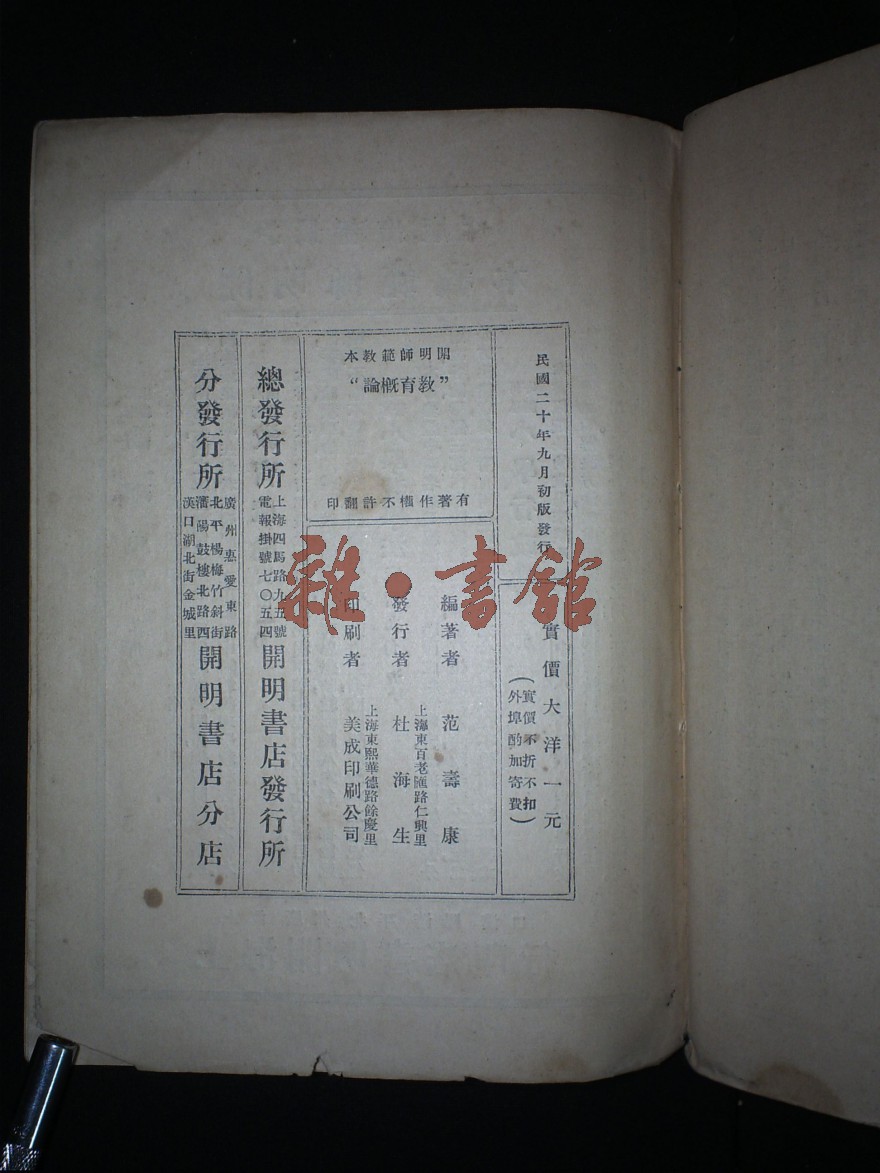 民國二十年九月初版發行
實價大洋一元
（實價不折不扣
外埠酌加寄費）
開明師範教本
“教育概論”
有著作權不許翻印
編著者　范壽康
發行者　杜海生
上海東百老匯路仁興里
印刷者　美成印刷公司
上海東熙華德路餘慶里
總發行所
上海四馬路九五號
電報掛號七〇五四
開明書店發行所
分發行所
廣州惠愛東路
北平楊梅竹斜街
瀋陽鼓樓北路西
漢口湖北街金城里
開明書店分店
雜·書館